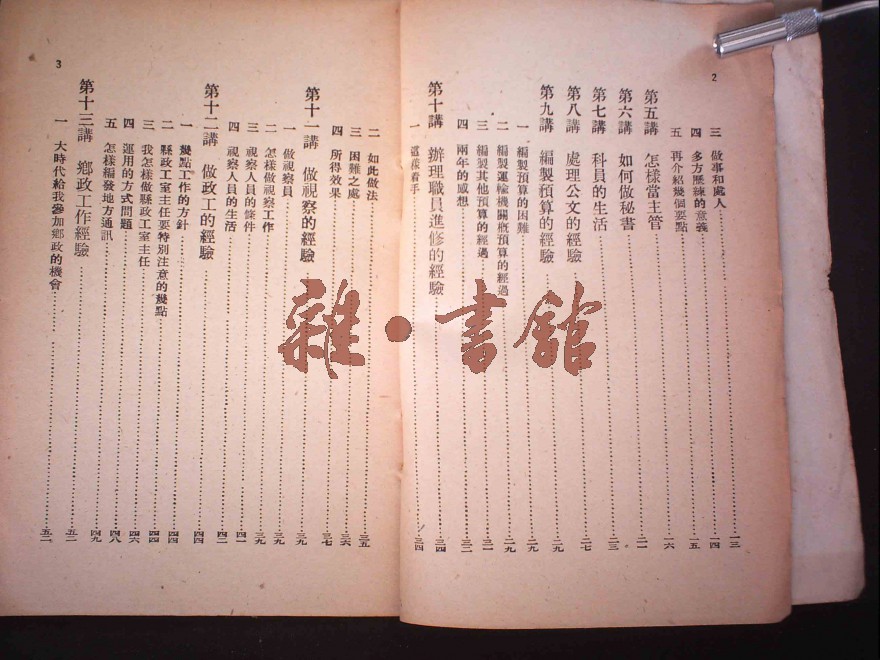 2
三 做事和處人……一三
四 多方歷練的意義……一四
五 再介紹幾個要點……一五
第五講 怎樣當主管……一六
第六講 如何做秘書……二一
第七講 科員的生活……二三
第八講 處理公文的經驗……二七
第九講 編製預算的經驗……二九
一 編製預算的困難……二九
二 編製運輸機關概預算的經過……二九
三 編製其他預算的經過……三一
四 兩年的感想……三二
第十講 辦理職員進修的經驗……三四
一 這樣着手……三四
3
二 如此做法……三五
三 困難之處……三六
四 所得效果……三七
第十一講 做視察的經驗……三九
一 做視察員……三九
二 怎樣做視察工作……三九
三 視察人員的條件……四一
四 視察人員的生活……四二
第十二講 做政工的經驗……四四
一 幾點工作的方針……四四
二 縣政工室主任要特別注意的幾點……四四
三 我怎樣做縣政工室主任……四四
四 運用的方式問題……四六
五 怎樣編發地方通訊……四八
第十三講 鄉政工作經驗……四九
一 大時代給我參加鄉政的機會……五二
雜·書館